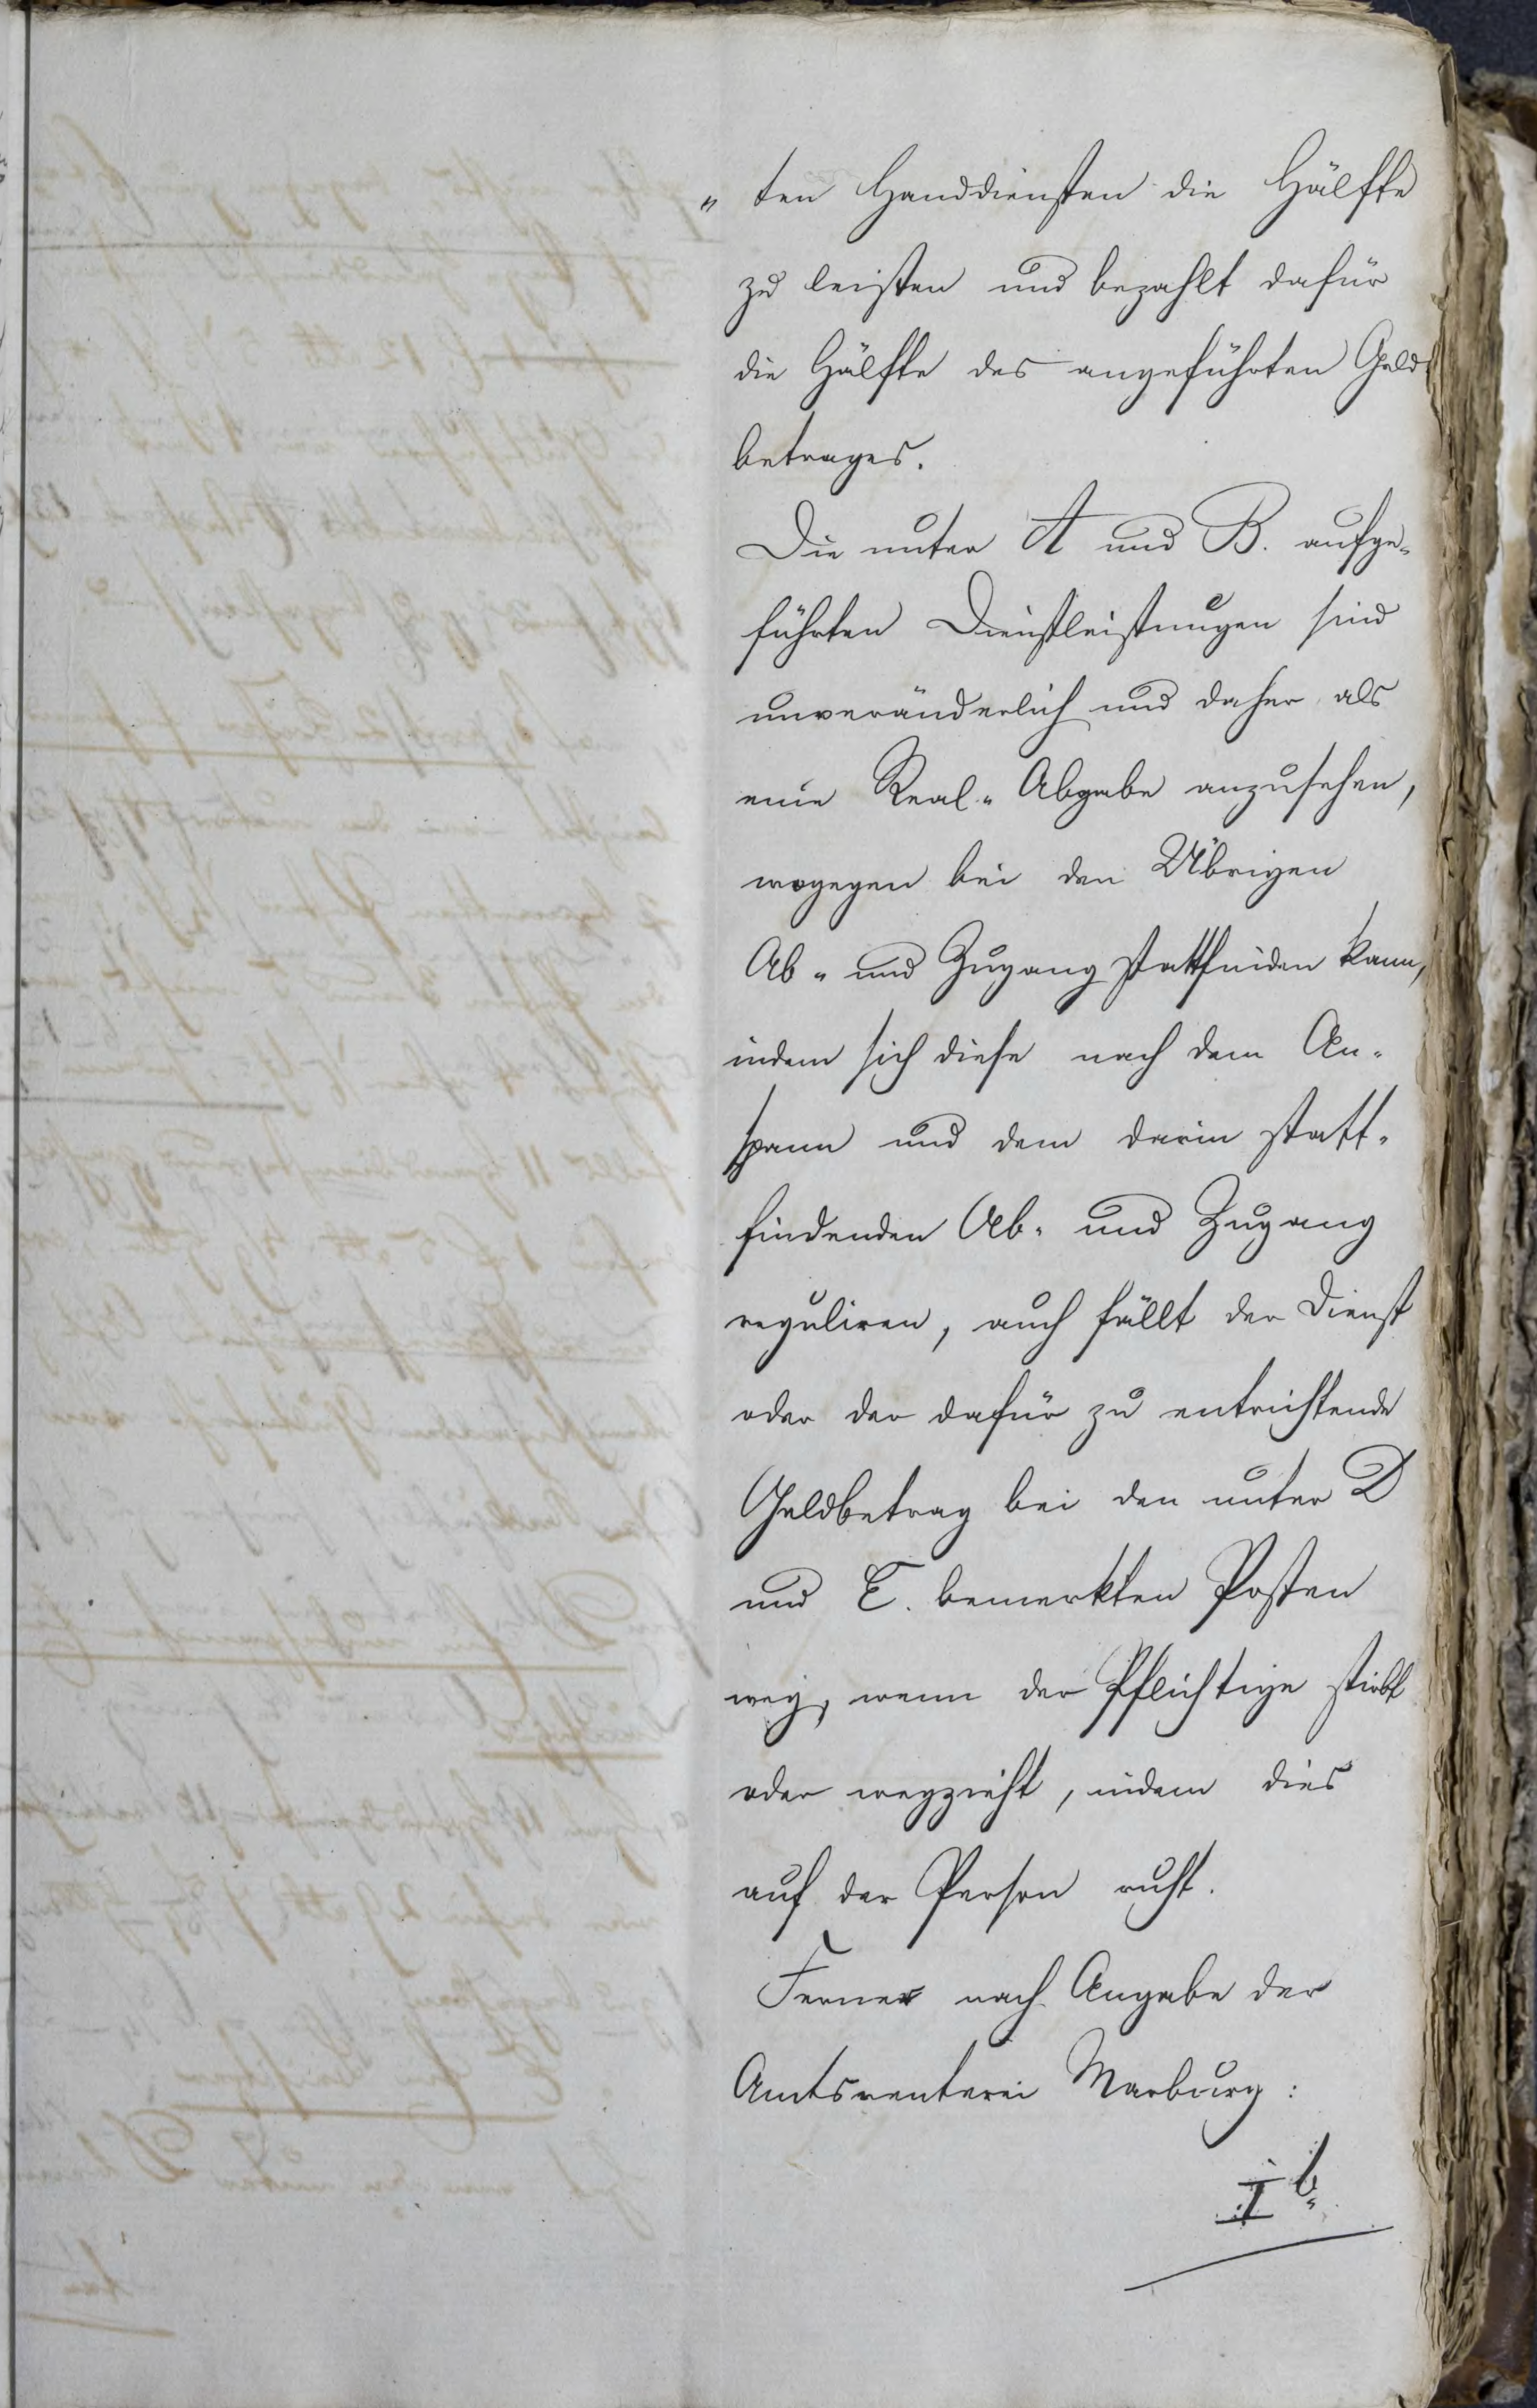 „ ten Handdiensten die Hälfte
zu leisten und bezahlt dafür
die Hälfte des angeführten Geld
betrages.
Die unter A und B. aufge„
führten Dienstleistungen sind
unveränderlich und daher als
eine Real„ Abgabe anzusehen,
wogegen bei den Übrigen
Ab„ und Zugang stattfinden kann,
indem sich diese nach dem An„
spann und dem darin statt„
findenden Ab„ und Zugang
reguliren, auch fällt der Dienst
oder der dafür zu entrichtende
Geldbetrag bei den unter D
und E. bemerkten Posten
weg, wenn der Pflichtige stirbt
oder wegzieht, indem dies
auf der Person ruht.
Ferner nach Angabe der
Amtsrenterei Marburg:
I b.